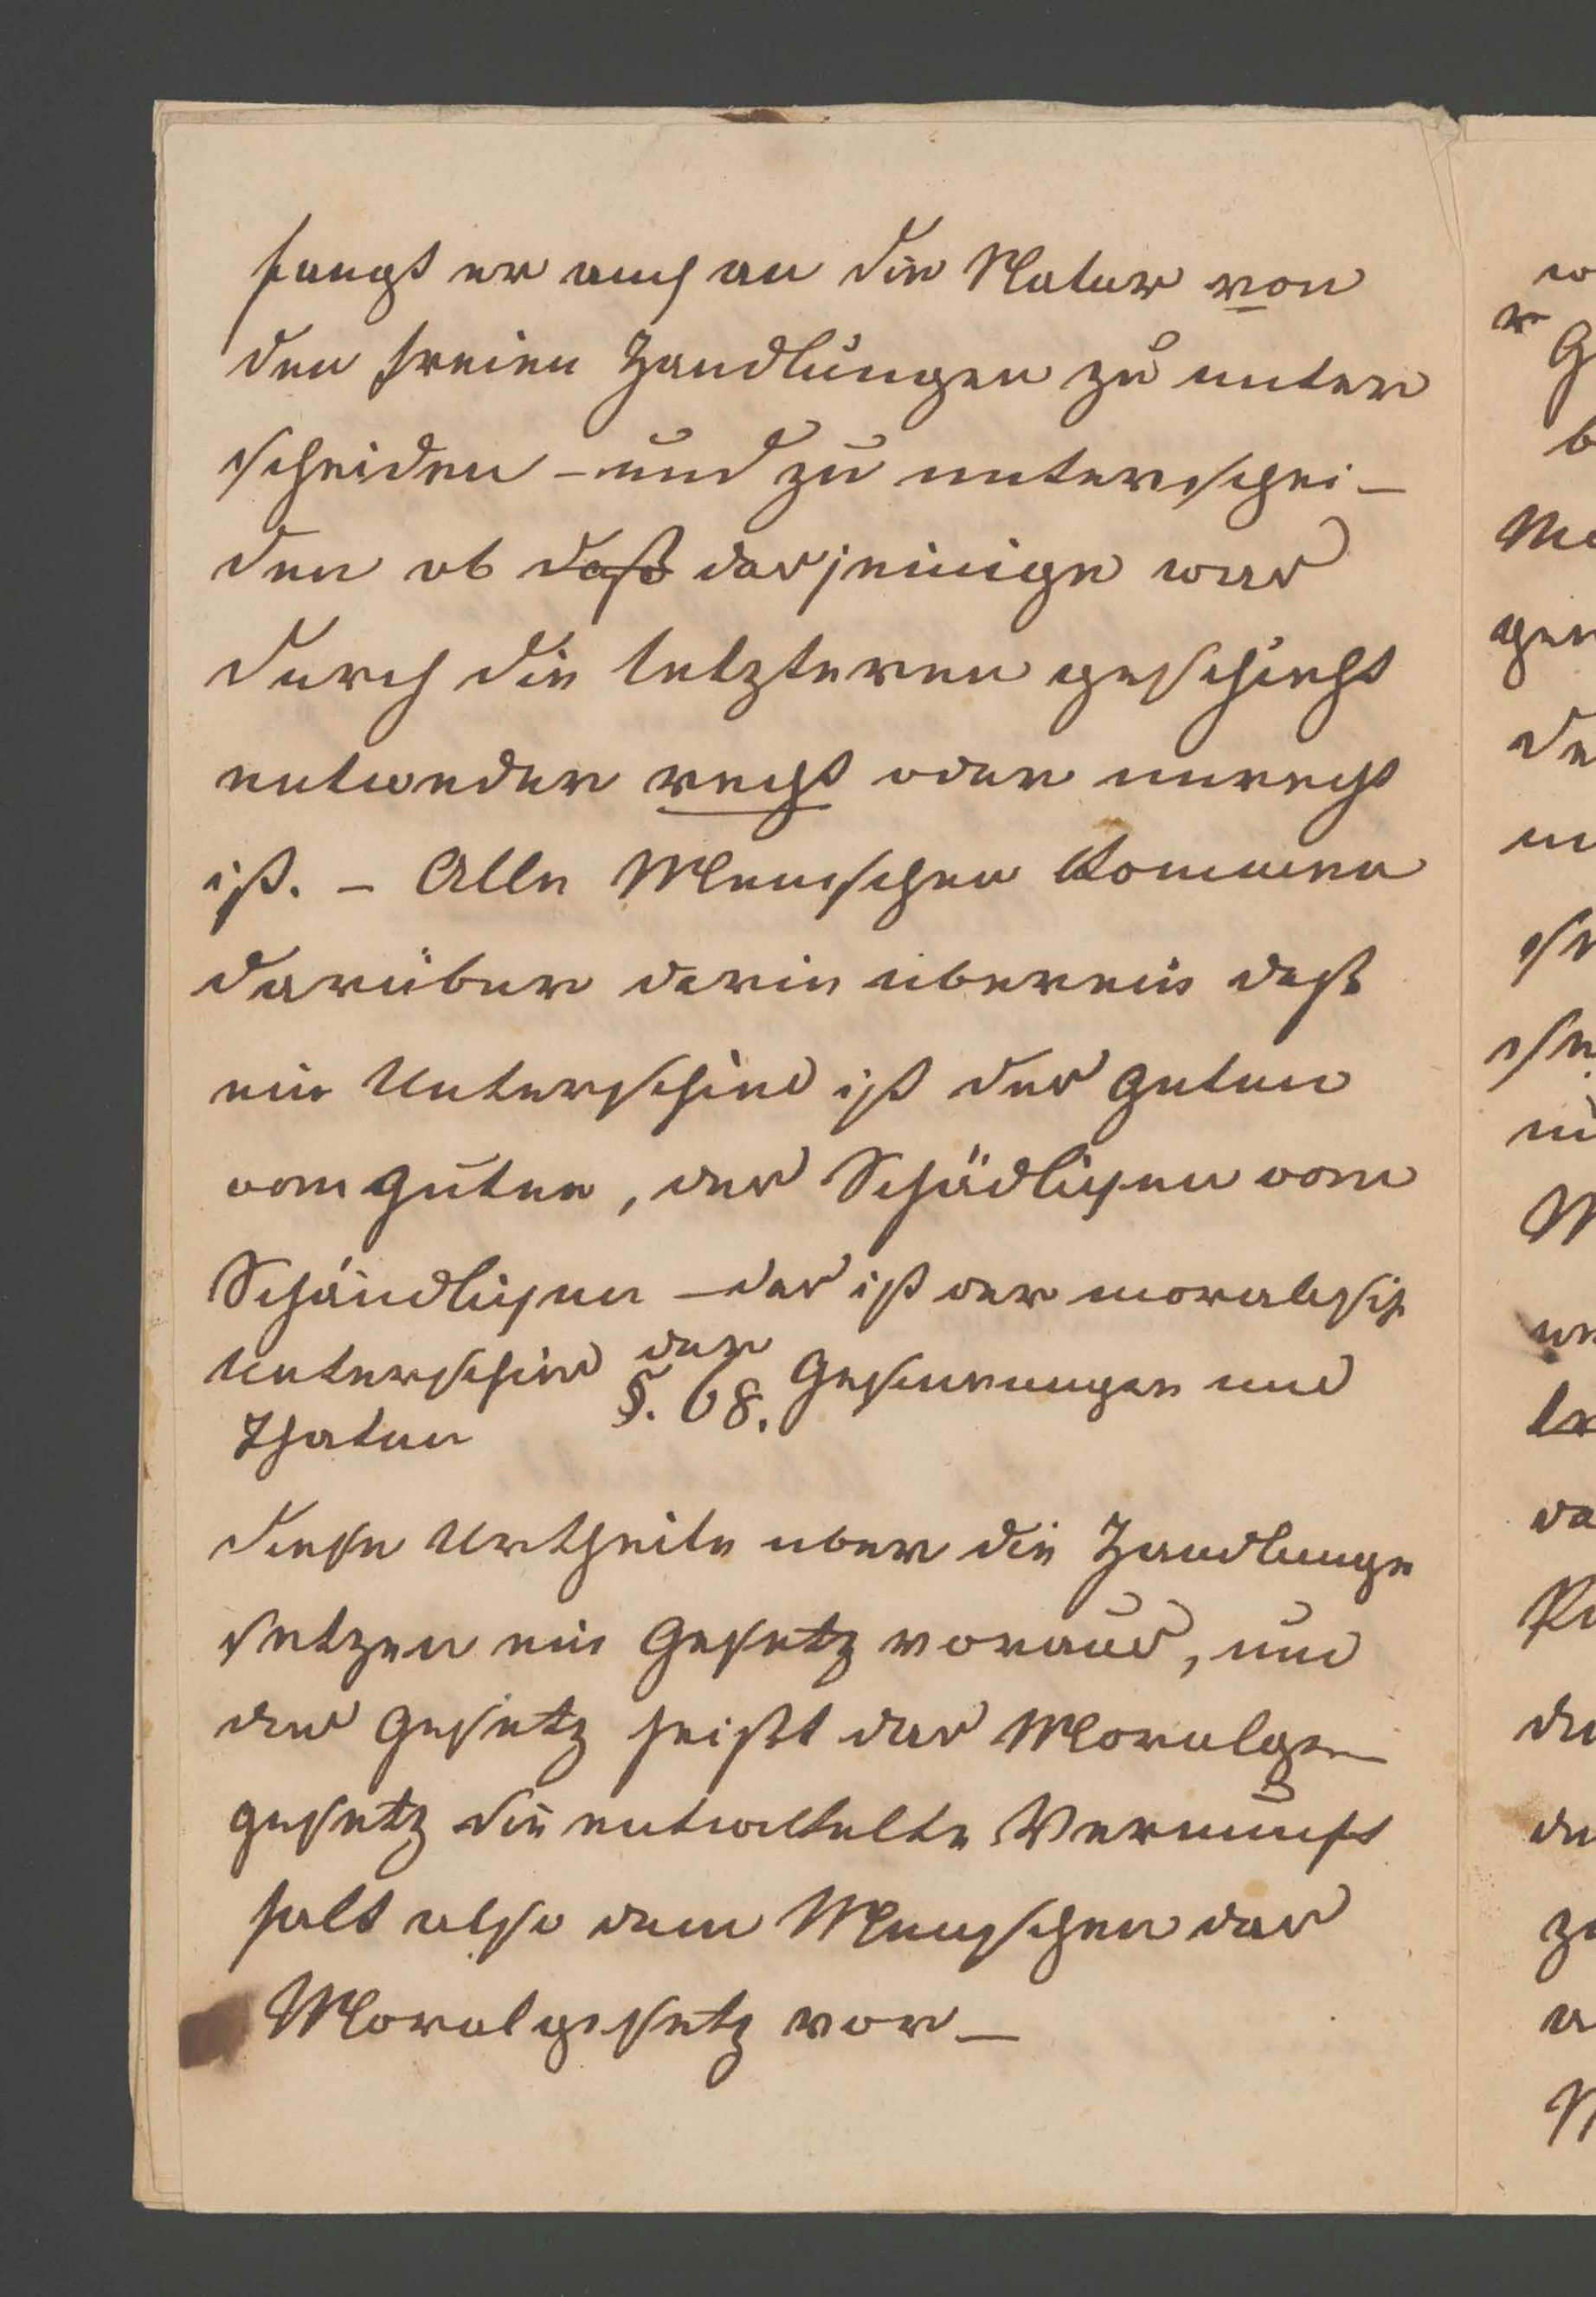 fangt er auch an die Natur von
den freien Handlungen zu unter
scheiden – und zu unterschei–
den ob daß dasjeinige was
durch die letzteren geschieht
entweder recht oder unrecht
ist. – Alle Menschen kommen
darüber darin uberein daß
ein Unterschied ist des guten
vom guten, des Schädlichen vom
Schändlichen – das ist der moralisch
Unterschied der Gesinnungen und
Thaten
§. 68.
diese Urtheile uber die Handlunge
setzen ein Gesetz voraus, und
das Gesetz heißt das Moralge–
gesetz die entwikelte Vernunft
halt also dem Menschen das
Moralgesetz vor –